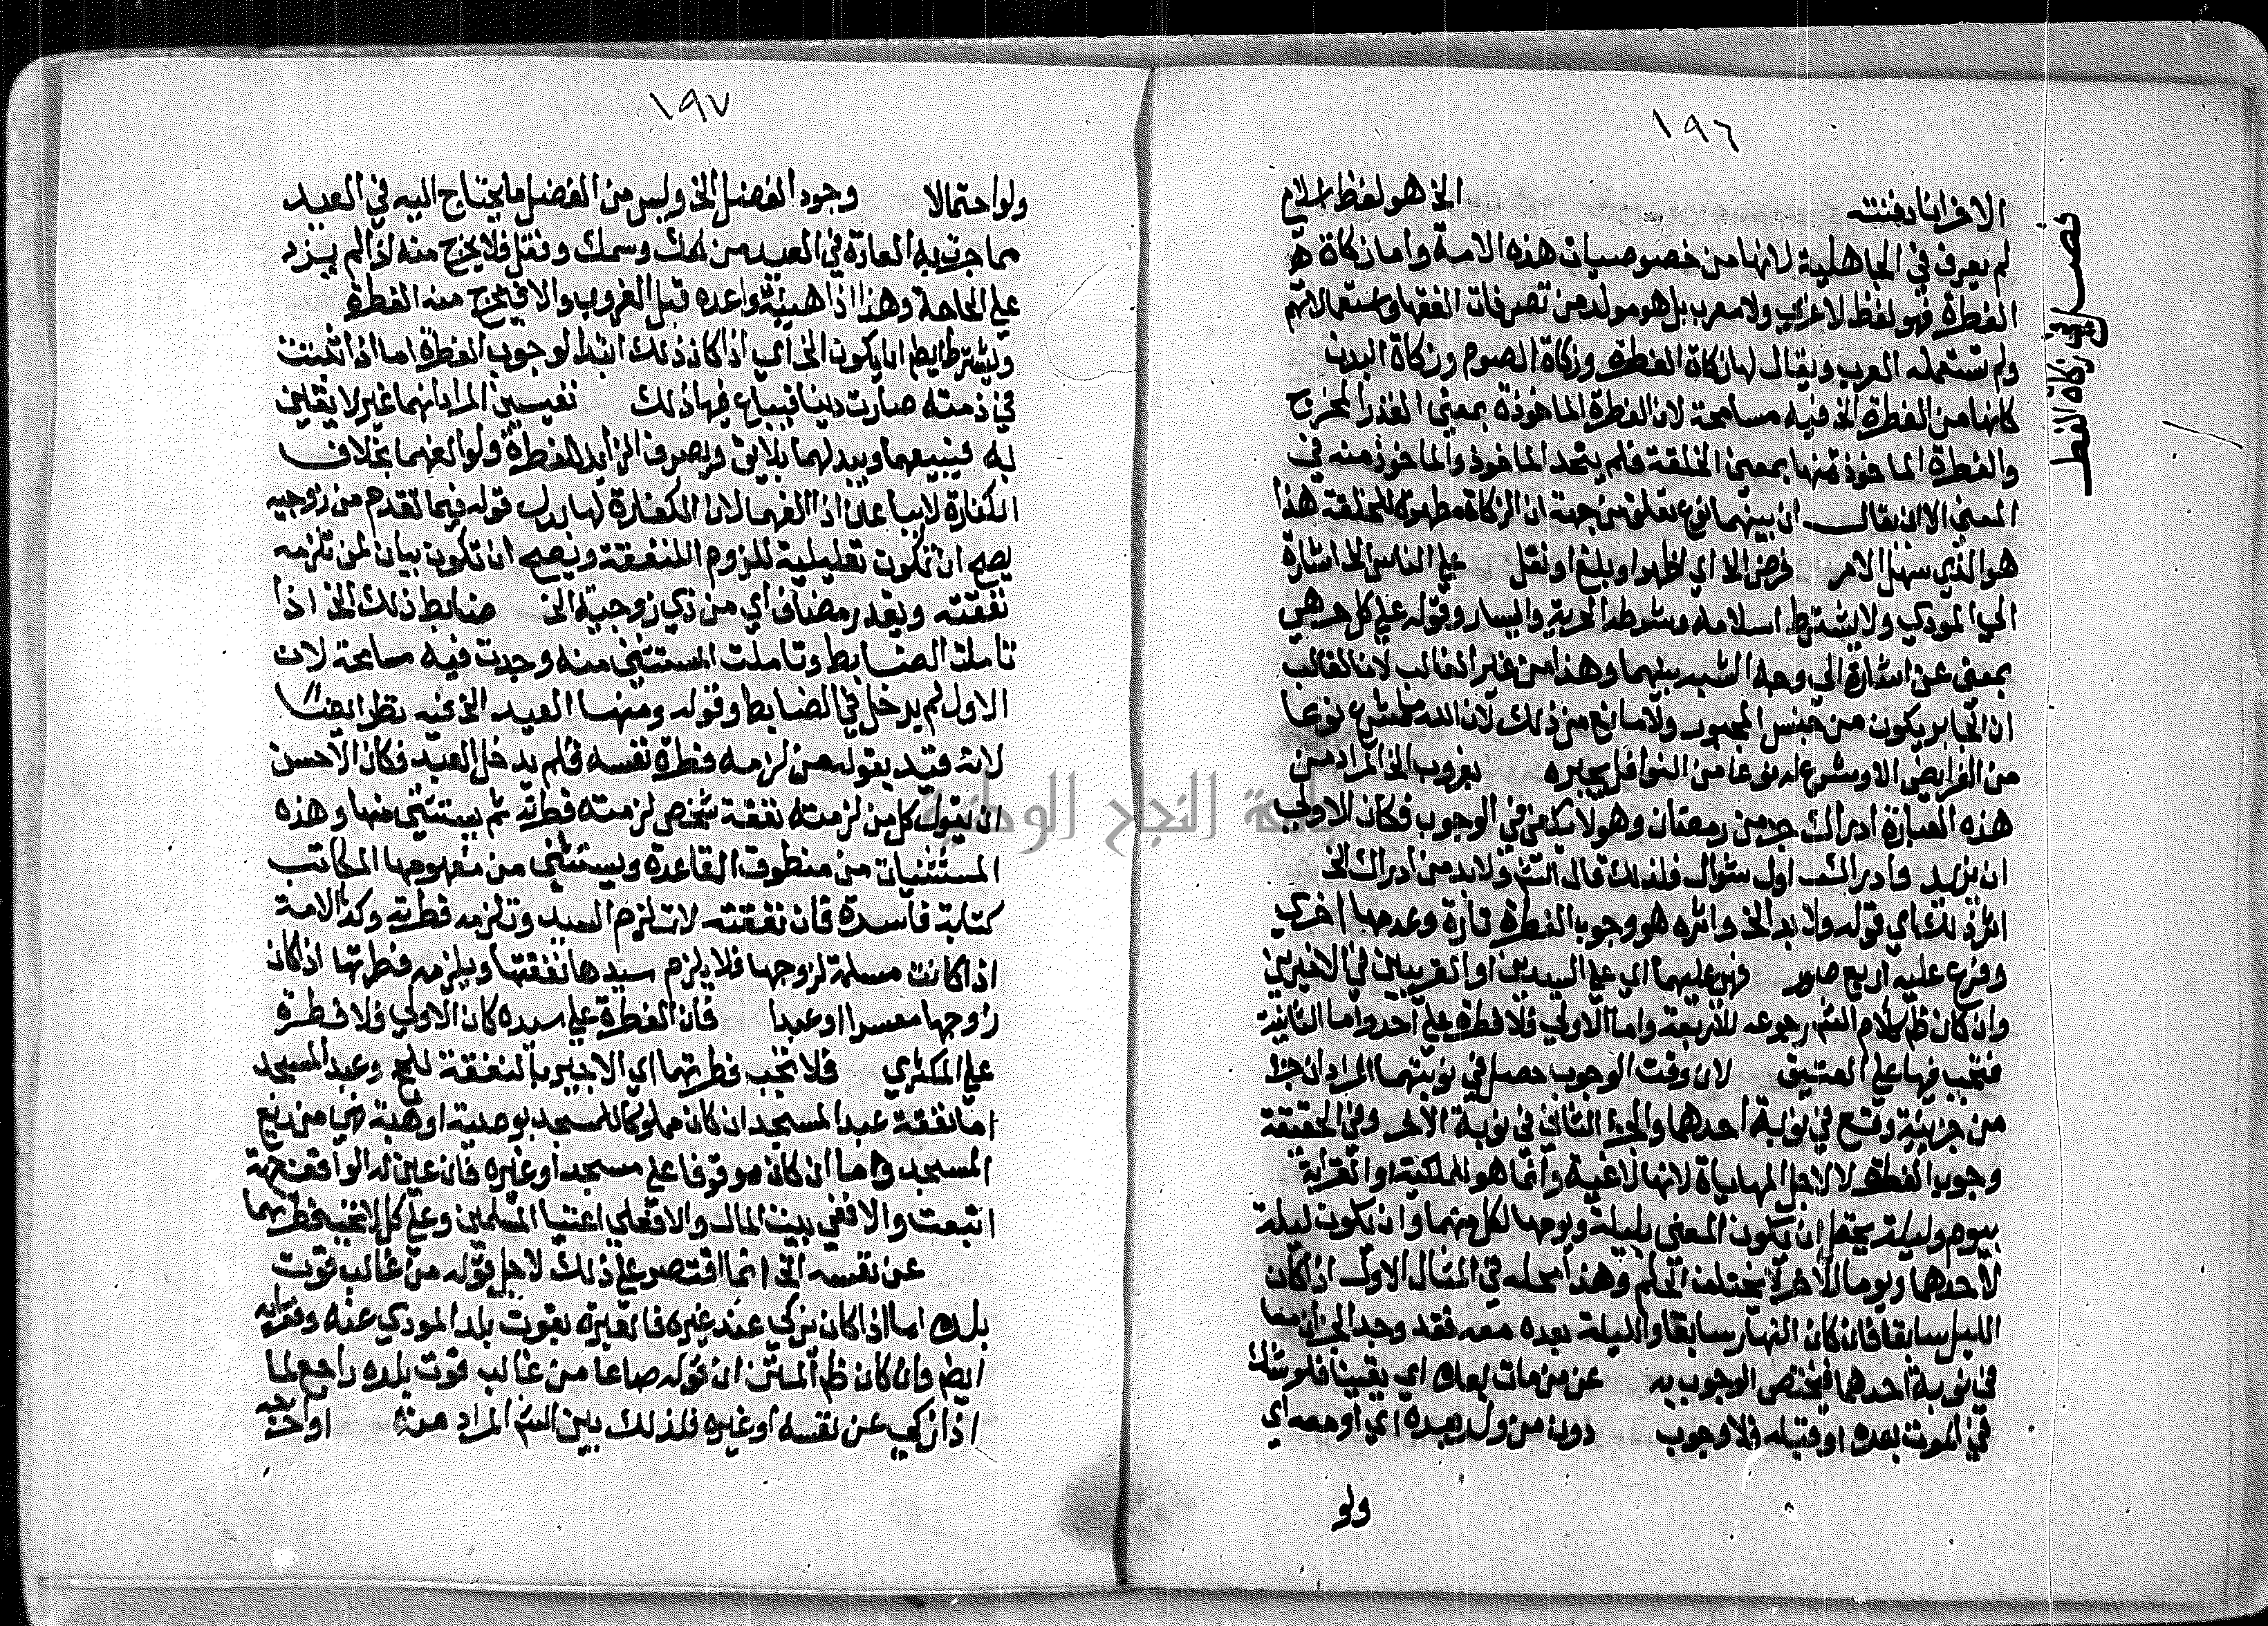 ١٩٦
فصل في زكاة الفطر
الاخر انا دفنته الخ هو لفظ اسلامي
لم يعرف في الجاهلية لانها من خصوصيات هذه الامة واما زكاة
الفطرة فهو لفظ لا عربي ولا معرب بل هو مولد من تصرفات الفقها واستعمالاتهم
ولم تستعمله العرب ويقال لها زكاة الفطرة وزكاة الصوم وزكاة البدن
كانها من الفطرة الخ فيه مسامحة لان الفطرة الماخوذة بمعنى القدر المخرج
والفطرة الماخوذ منها بمعنى الخلقة فلم يتحد الماخوذ والماخوذ منه في
المعني الا ان يقال ان بينهما نوع تعلق من جهة ان الزكاة مطهرة للخلقة هذا
هو الذي سهل الامر فرض الخ اي اظهر او بلغ او نقل علي الناس الخ اشارة
الي المودي ولا يشترط اسلامه وشرطه الحرية واليسار وقوله علي كل حر هي
بمعني عن اشارة الي وجه الشبه بينهما وهذا من غير الغالب لان الغالب
ان الجابر يكون من جنس المجبور ولا مانع من ذلك لان الله ما شرع نوعا
من الفرايض الا وشرع له نوعا من النوافل يجبره بغروب الخ المراد من
هذه العبارة ادراك جزء من رمضان وهو لا يكفي في الوجوب فكان الاولي
ان يزيد وادراك اول شوال فلذلك قال الشم ولا بد من ادراك الخ
اثر ذلك اي قوله ولا بد الخ واثره هو وجوب الفطرة تارة وعدمها اخري
وفرع عليه اربع صور فهي عليهما اي علي السيدين او القريبين في الاخيرين
وان كان ظم كلام الشم رجوعه للاربعة واما الاولي فلا فطرة علي احد واما الثانية
فتجب فيها علي العتيق لان وقت الوجوب حصل في نوبتهما المراد ان جزا
من جزييه وقع في نوبة احدهما والجزء الثاني في نوبة الاخر وفي الحقيقة
وجوب الفطرة لا لاجل المهاياة لانها لاغية وانما هو للملكية او القرابة
بيوم وليلة يحتمل ان يكون المعني بليلة ويومها لكل منهما وان يكون ليلة
لاحدهما ويوما للاخر لا يختلف الحكم وهذا محله في المثال الاول اذا كان
الليل سابقا فان كان النهار سابقا والليلة بعده معه فقد وجد الجزان معا
في نوبة احدهما فيختص الوجوب به عن من مات بعدك اي يقينا فلو شك
في الموت بعده او قبله فلا وجوب دون من ولد بعده اي او معه اي
ولو
١٩٧
ولو احتمالا وجود الفضل الخ وليس من الفضل ما يحتاج اليه في العيد
مما جرت به العادة في العيد من كعك وسمك ونقل فلا يخرج منه اذا لم يزد
علي الحاجة وهذا اذا هيئه واعده قبل الغروب والا فيخرج منه الفطرة
ويشترط ايضم ان يكون الخ اي اذا كان ذلك ابتدا لوجوب الفطرة اما اذا ثبتت
في ذمته صارت دينا فيباع فيها ذلك نفيسين المراد انهما غير لايقين
به فيبيعهما ويبدلهما بلايق ويصرف الزايد للفطرة ولو الفهما بخلاف
الكفارة لا يباعان اذا الفهما لان الكفارة لها بدل قوله فيما تقدم من زوجيه
يصح ان تكون تعليلية للزوم النفقة ويصح ان تكون بيان لمن تلزمه
نفقته ويقدر مضاف اي من ذي زوجية الخ ضابط ذلك الخ اذا
تاملت الضابط وتاملت المستثني منه وجدت فيه مسامحة لان
الاول لم يدخل في الضابط وقوله ومنها العبد الخ فيه نظر ايضا
لانه قيد بقوله من لزمه فطرة نفسه فلم يدخل العبد فكان الاحسن
ان يقول كل من لزمته نفقة شخص لزمته فطرته ثم يستثني منها وهذه
المستثنيات من منطوق القاعدة ويستثني من مفهومها المكاتب
كتابة فاسدة فان نفقته لا تلزم السيد وتلزمه فطرته وكذا الامة
اذا كانت مسلمة لزوجها فلا يلزم سيدها نفقتها ويلزمه فطرتها اذ كان
زوجها معسرا او عبدا فان الفطرة علي سيده كان الاولي فلا فطرة
علي المكتري فلا تجب فطرتهما اي الاجير بالنفقة للحج وعبد المسجد
اما نفقة عبد المسجد ان كان مملوكا للمسجد بوصية او هبة فهي من ريع
المسجد واما ان كان موقوفا علي مسجد او غيره فان عين له الواقف جهة
اتبعت والا ففي بيت المال والا فعلي اغنيا المسلمين وعلي كل لا تجب فطرتهما
عن نفسه الخ انما اقتصر علي ذلك لاجل قوله من غالب قوت
بلده اما اذا كان يزكي عند غيره فالعبرة بقوت بلد المودي عنه وفقرايه
ايضم وان كان ظم المتن ان قوله صاعا من غالب قوت بلده راجع لما
اذا زكي عن نفسه او غيره فلذلك بين الشم المراد منه